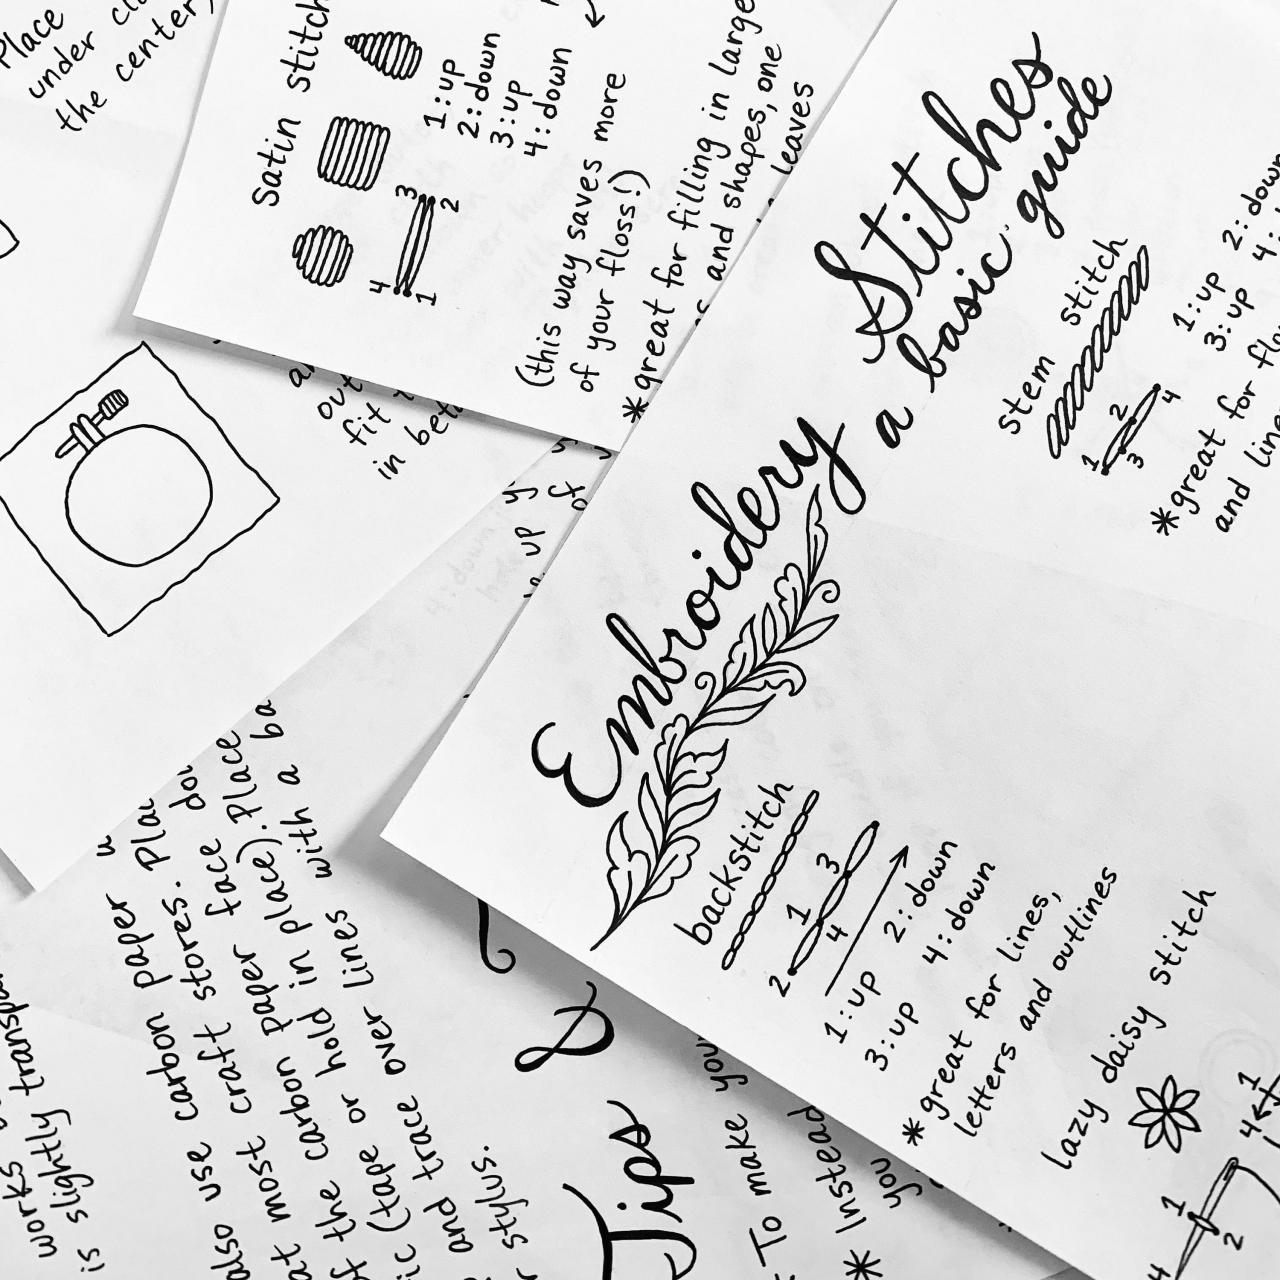 Place
under
the center,
Satin stitch
1: up
2: down
3: up
4: down
3
2
4
1
(this way saves more
of your floss!)
* great for filling in large
and shapes, one
leaves
out
fit
in
up
of
Embroidery Stitches
a basic guide
stem stitch
2
4
1
3
1: up
2: down
3: up
4:
* great for
and
backstitch
3
1
4
2
1: up
2: down
3: up
4: down
* great for lines,
letters and outlines
lazy daisy stitch
1
4
1
2
4
also use carbon paper
at most craft stores.
the carbon paper face
(tape or hold in place). Place
and trace over lines with a
stylus.
works
is slightly
&
Tips
To make
* Instead
you